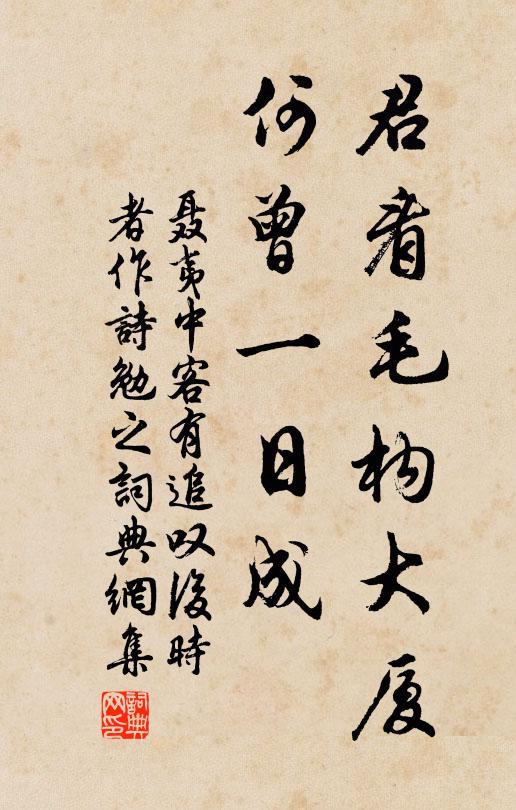 君看毛构大厦
何曾一日成
聂夷中客有追叹後時
者作詩勉之詞典網集
詞典
网印